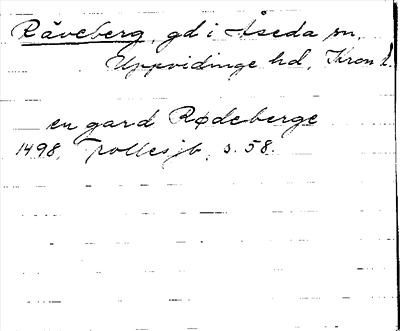 Råveberg, gd i Åseda sn,
Uppvidinge hd, Kron. l.
en gard Rødeberge
1498. Trolles jb, s. 58.